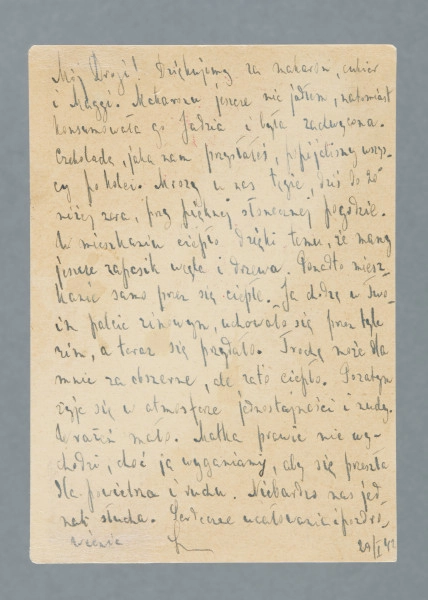 Mój Drogi! Dziękujemy za makaron, cukier
i Maggi. Makaronu jeszcze nie jadłem, natomiast
konsumowała go Jadzia i była zachwycona.
Czekoladę, jaką nam przysłałeś, popijaliśmy wszys-
cy po kolei. Mrozy u nas tęgie, dziś do 20
niżej zera, przy pięknej słonecznej pogodzie.
W mieszkaniu ciepło dzięki temu, że mamy
jeszcze zapasik węgla i drzewa. Ponadto miesz-
kanie samo przez się ciepłe. Ja chodzę w Two-
im palcie zimowym, uchowało się przez tyle
zim, a teraz się przydało. Trochę może dla
mnie za obszerne, ale zato ciepło. Pozatym
żyje się w atmosferze jednostajności i nudy.
Wrażeń mało. Matka prawie nie wy-
chodzi, choć ją wyganiamy, aby się przeszła
dla powietrza i ruchu. Niebardzo nas jed-
nak słucha. Serdeczne ucałowania i pozdro-
wienia
29/I 42